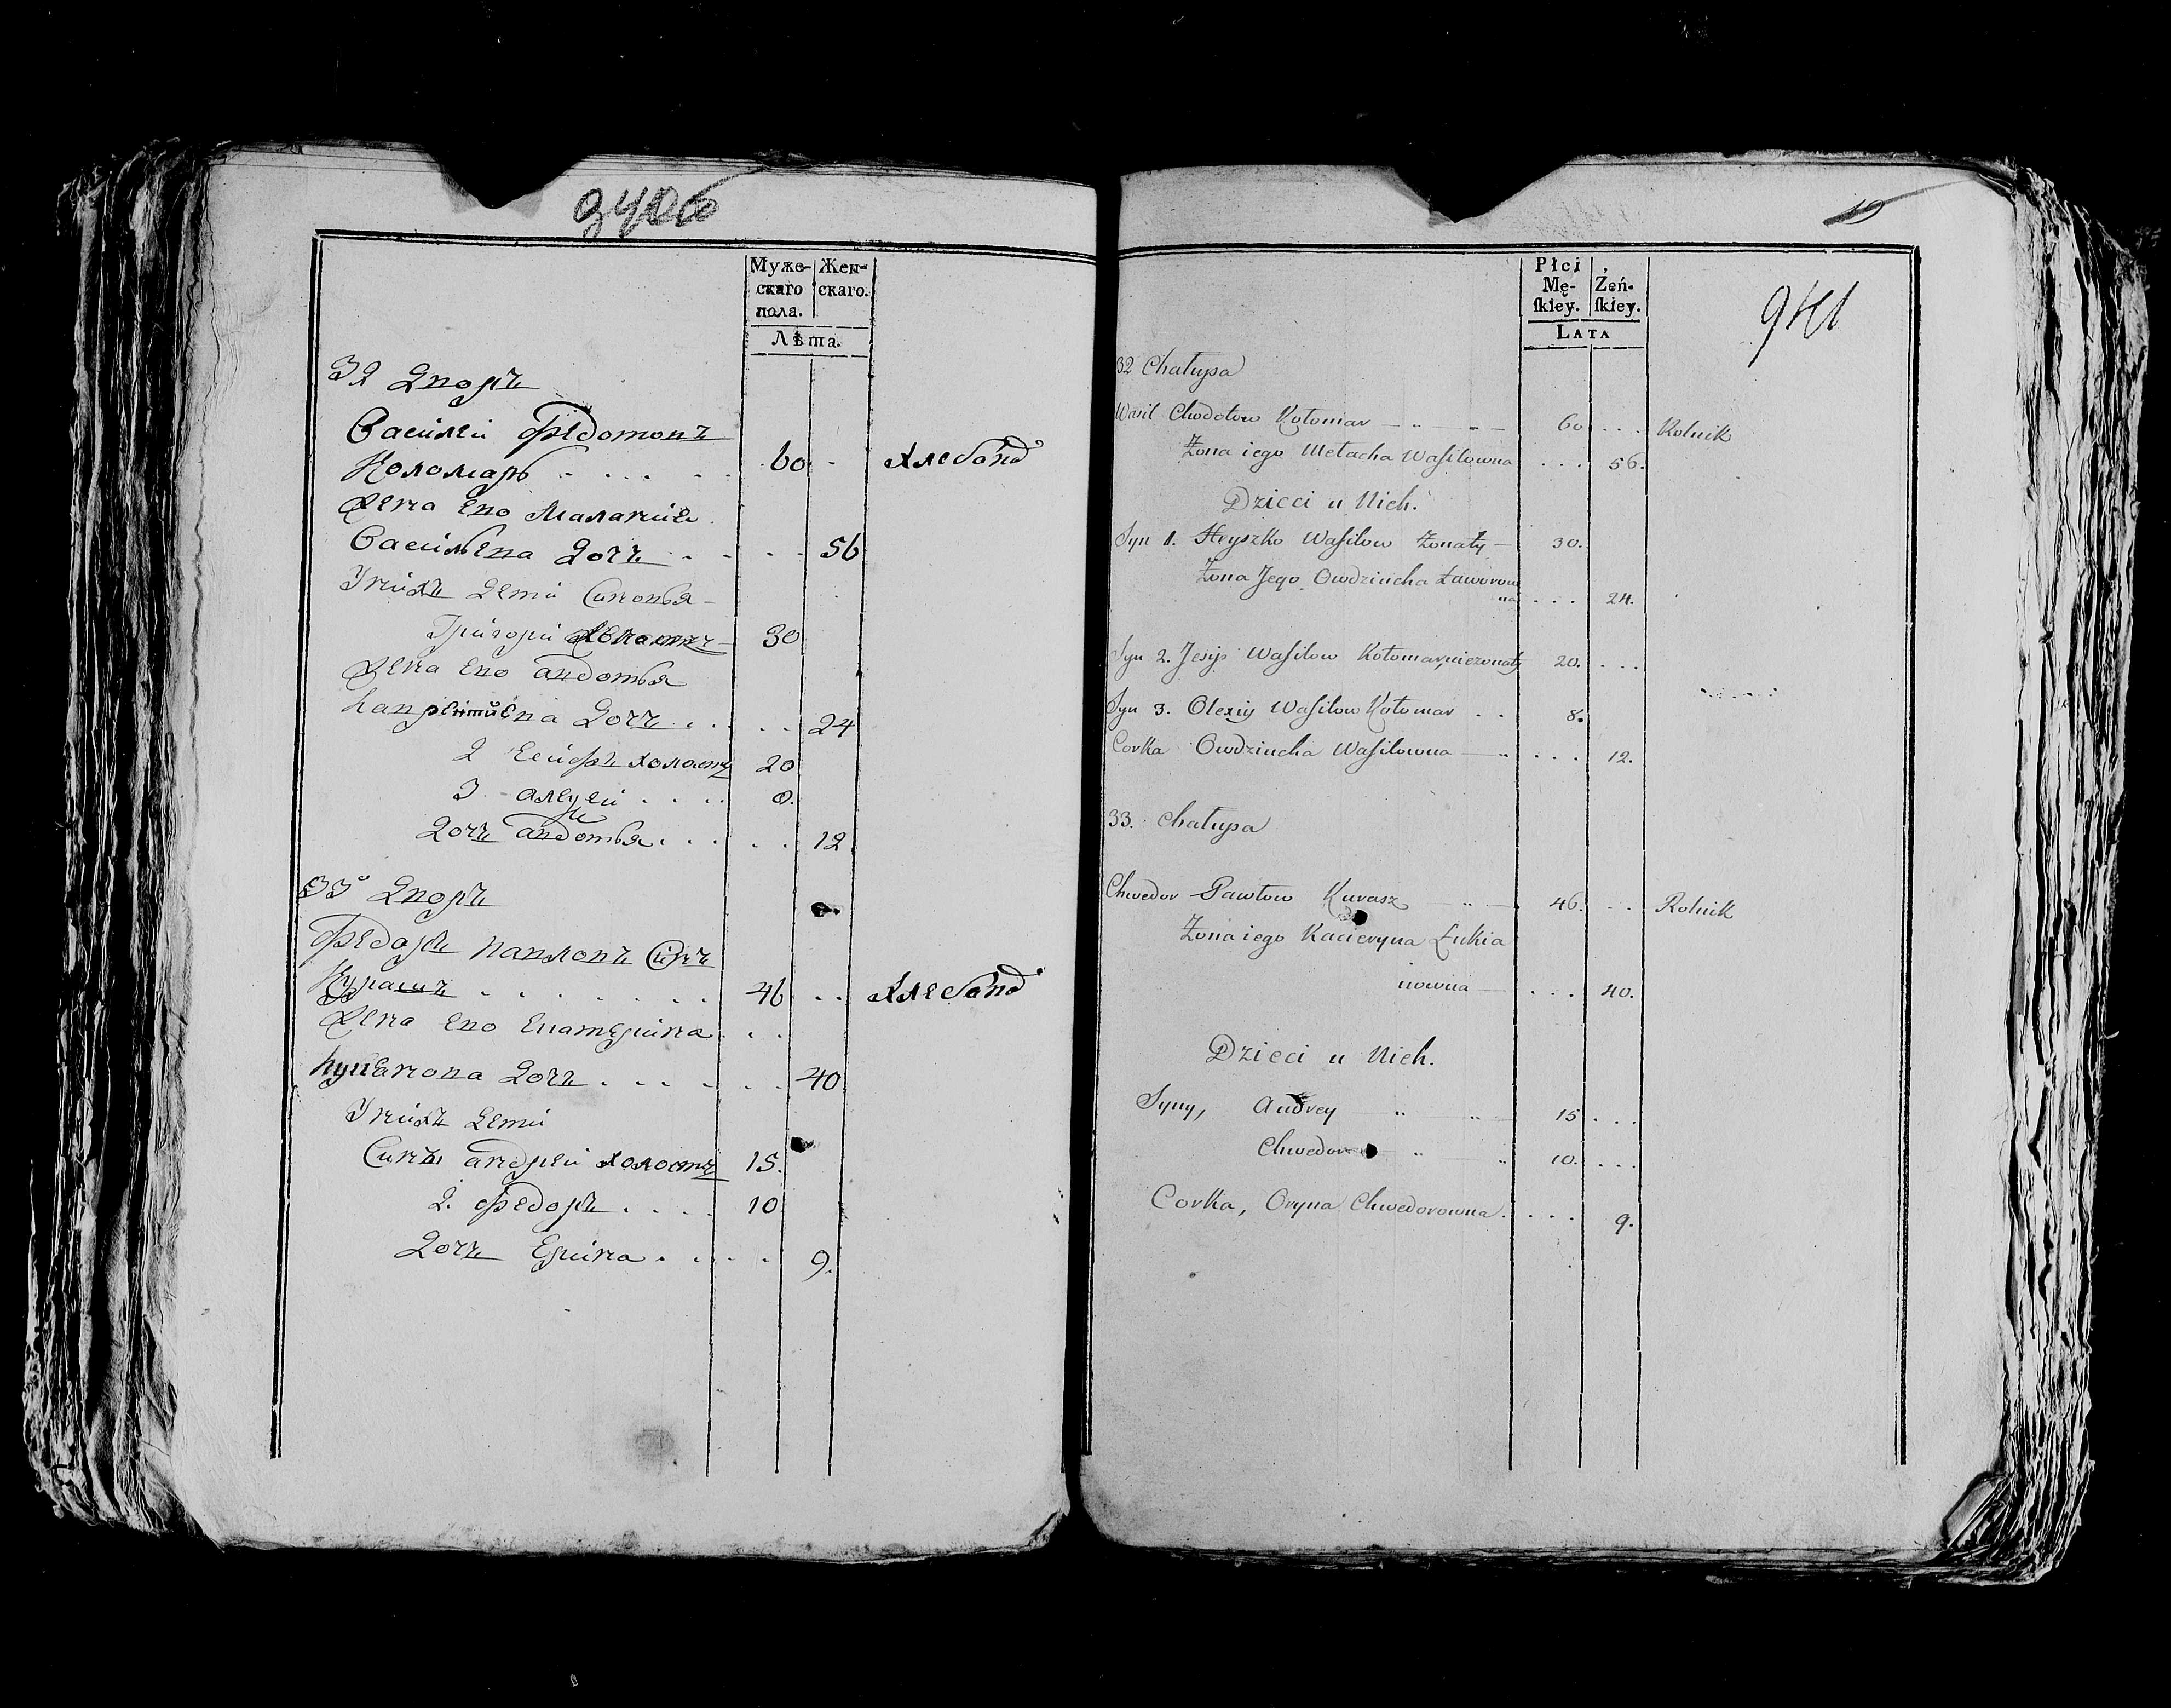 Муже-
скаго
пола.
Жен-
скаго.
Лѣта.
32 Дворъ
Василей Федотовъ
Коломаръ 60 Хлебопд
Жена ево Маланчия
Васильева Дочь 56
У нихъ Дети Сыновья
Григорей 30
Жена ево авдотья
Лаврентиева Дочь 24
2 Есифъ холостъ 20
3 алеѯей 8.
Дочь авдотья 12
33 Дворъ
Федоръ Павловъ Сынъ
Курашъ 46 Хлебопд
Жена ево Екатерина
Лукьянова Дочь 40
У нихъ Дети
Сынъ андрей холостъ 15.
2. Федоръ 10
Дочь Ерина 9.
Płci
Mę-
ſkiey.
Żeń-
ſkiey.
LATA
941
32 Chałupa
Wasil Chwdotow Kołomar 60 Rolnik
Żona iego Mełacha Waſilowna 56.
Dzieci u Nich.
Syn 1. Hryszko Waſilow Żonaty 30.
Żona Jego Owdziucha Ławorow
na 24.
Syn 2. Jesyp Waſilow Kołomar, nieżonaty 20.
Syn 3. Olexiy Waſilow Kołomar 8.
Corka Owdziucha Waſilowna 12.
33. Chałupa
Chwedor Pawłow Kurasz 46. Rolnik
Żona iego Kacieryna Łukia
nowna 40.
Dzieci u Nich.
Syny, Andrey 15
Chwedor 10.
Corka, Oryna Chwedorowna 9.